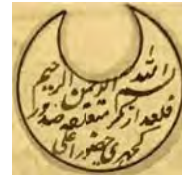 بسم الله الرحمن الرحيم
قلعه از نمبر متعلقه صدور
کچهری حضور اعلی